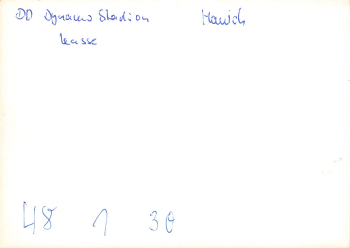 DD Dynamo Stadion Hauich
Kasse
48 1 30